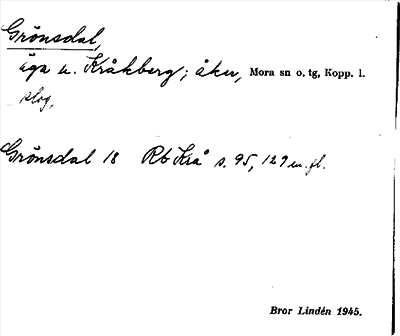 Grönsdal,
äga u. Kråkberg; åker, Mora sn o. tg, Kopp. l.
slog,
Grönsdal 18 Rb Krå s. 95, 129 m. fl.
Bror Lindén 1945.